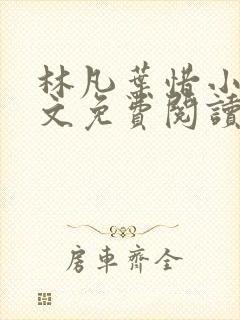 林凡葉惜小
文免費閱讀
房車齊全